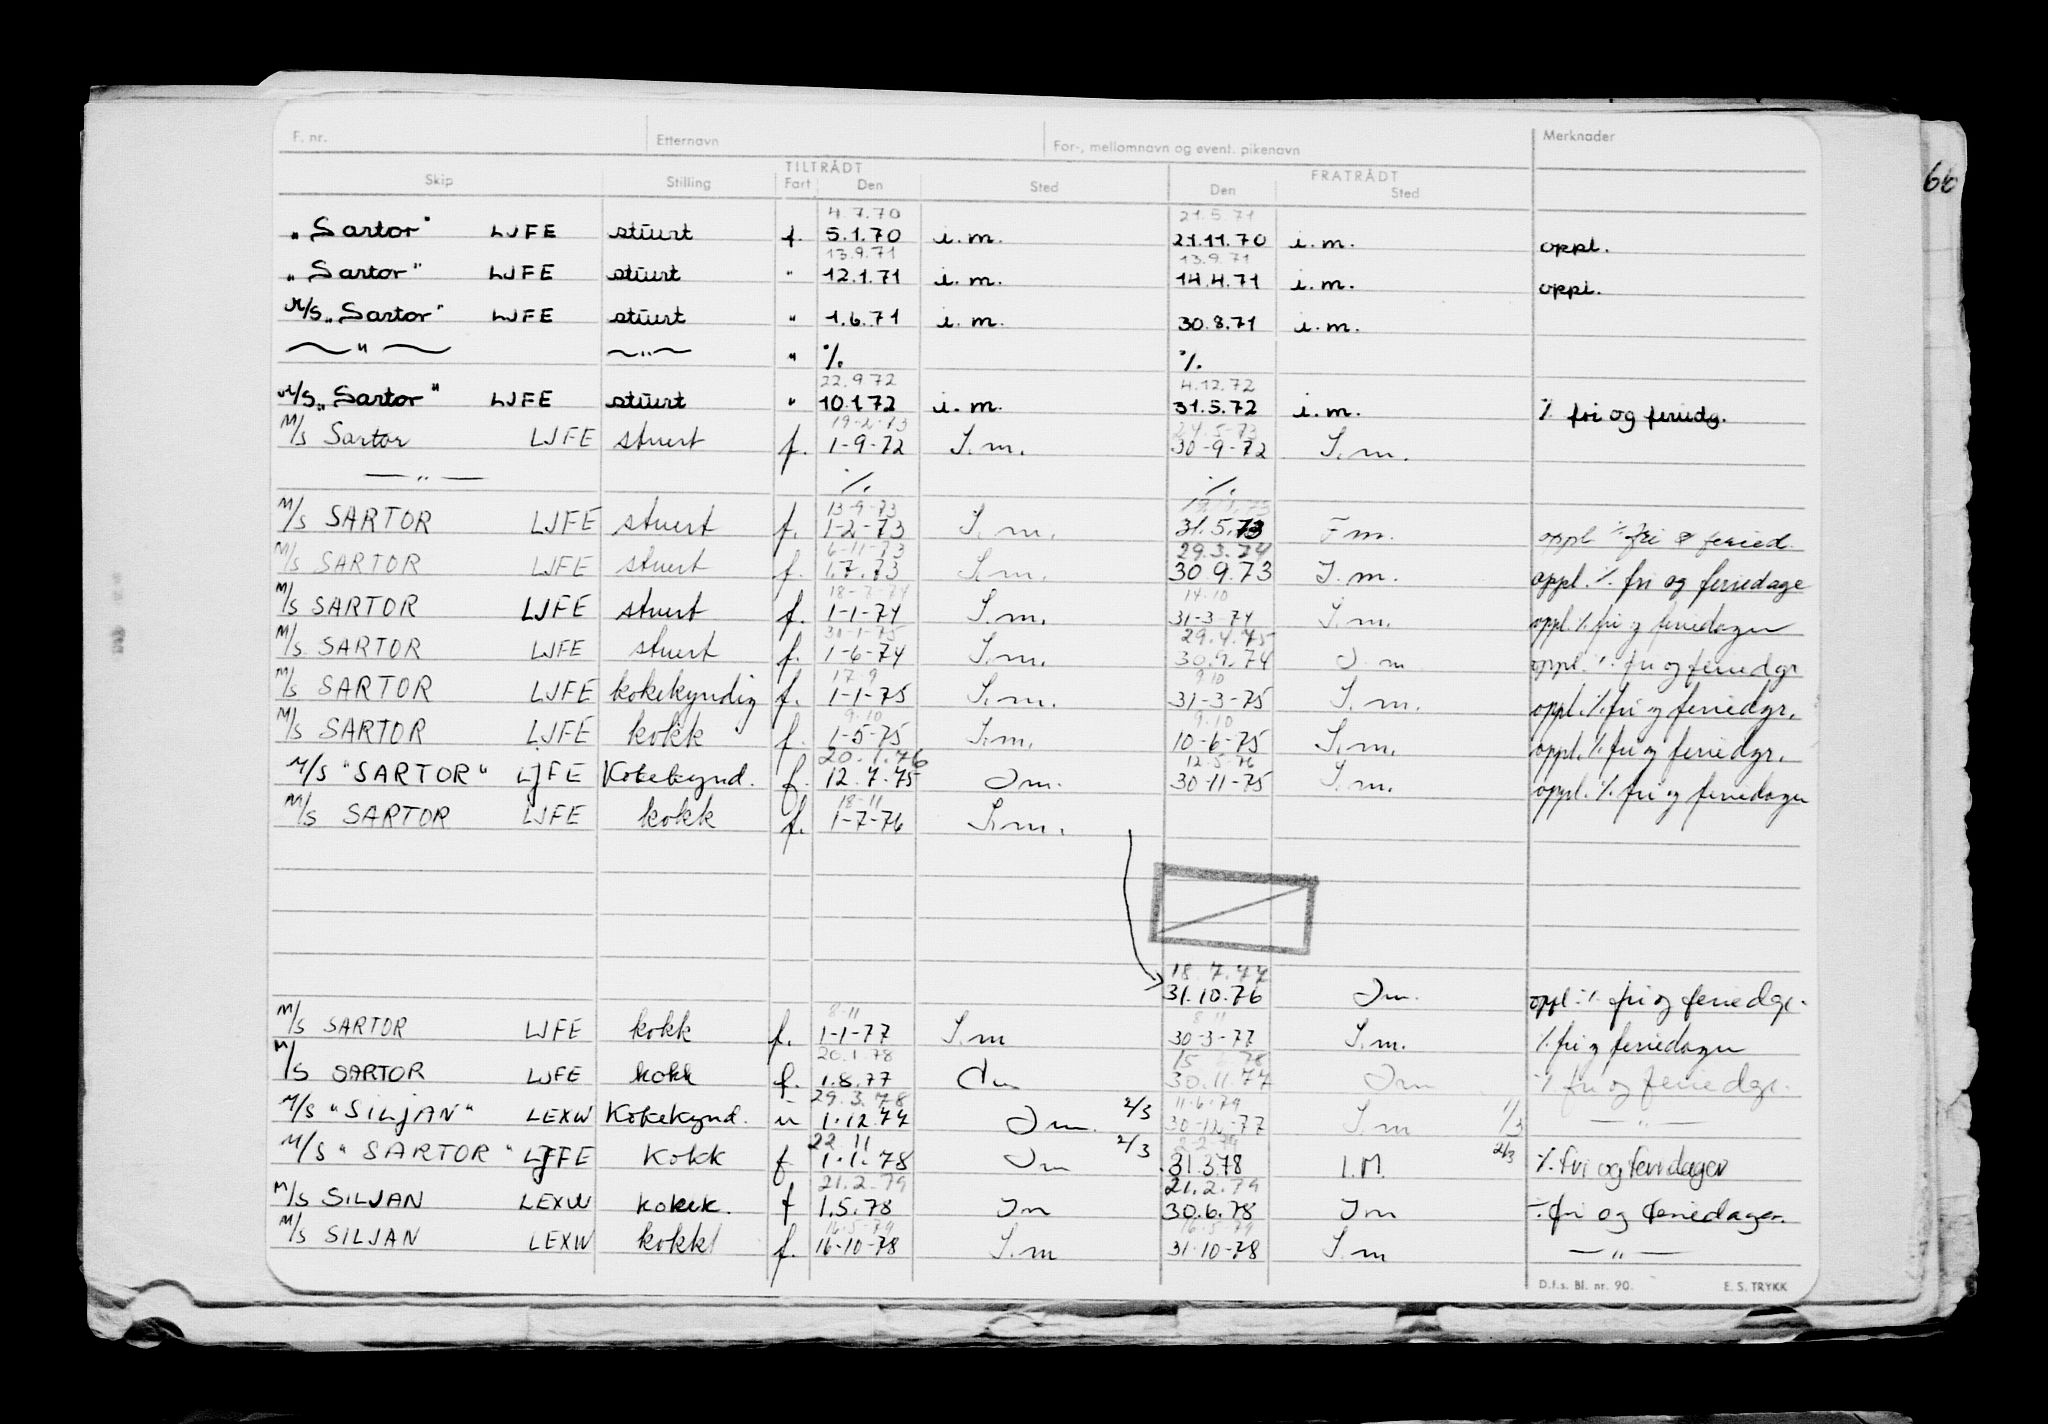 66
F. nr. Etternavn For-, mellomnavn og event. pikenavn Merknader
TILTRÅDT FRATRÅDT
Skip Stilling Fart Den Sted Den Sted
4.7.70 21.5.71
"Sartor" LJFE stuert f. 5.1.70 i.m. 21.11.70 i.m. oppl.
13.9.71 13.9.71
"Sartor" LJFE stuert " 12.1.71 i.m. 14.4.71 i.m. oppl.
M/S "Sartor" LJFE stuert " 1.6.71 i.m. 30.8.71 i.m.
— " — — " — " %. %.
22.9.72 4.12.72
M/S "Sartor" LJFE stuert " 10.1.72 i.m. 31.5.72 i.m. % fri og feriedg.
19-2-73 24-5-73
M/S Sartor LJFE stuert f. 1-9-72 I.m. 30-9-72 I.m.
— " — %. %.
13-9-73
M/S SARTOR LJFE stuert f. 1-2-73 I.m. 31.5.73 F m. oppl % fri & feried.
6-11-73 29.3.74
M/S SARTOR LJFE stuert f. 1.7.73 I.m. 30.9.73 I.m. oppl. %. fri og feriedage
18-7-74 14.10
M/S SARTOR LJFE stuert f. 1-1-74 I.m. 31-3-74 I.m. oppl. %. fri og feriedager
30-1-75 29.4.75
M/S SARTOR LJFE stuert f. 1-6-74 I.m. 30.9.74 I m oppl. %. fri og feriedgr
17.9 9.10
M/S SARTOR LJFE kokekyndig f. 1-1-75 I.m. 31-3-75 I.m. oppl. %. fri og feriedgr.
9.10 9.10
M/S SARTOR LJFE kokk f. 1-5-75 I.m. 10-6-75 I.m. oppl. %. fri og feriedgr.
20.1.76 12.5.76
M/S "SARTOR" LJFE Kokekynd. f. 12.7.75 Im. 30-11-75 I.m. oppl. %. fri og feriedager
18-11
M/S SARTOR LJFE kokk f. 1-7-76 I.m.
18.7.77
31.10.76 Im. oppl. %. fri og feriedgr.
8-11 8-11
M/S SARTOR LJFE kokk f. 1-1-77 I.m 30-3-77 I.m. %. fri og feriedager
20.1.78
M/S SARTOR LJFE kokk f. 1.8.77 Im 30.11.77 Im %. fri og feriedgr.
29.3.78 11.6.79
M/S "SILJAN" LEXW Kokekynd. u 1.12.77 Im. 2/3 30-12-77 I.m 1/3 — " —
22.11 2-2-79
M/S "SARTOR" LJFE Kokk f 1.1.78 Im 2/3 31.3.78 I.M. 2/3 %. fri og feriedager
21.2.79 21.2.79
M/S SILJAN LEXW kokk. f 1.5.78 Im 30.6.78 Im %. fri og feriedager.
16-5-79 16-5-79
M/S SILJAN LEXW kokk f. 16-10-78 I.m 31-10-78 I.m — " —
D.f.s. Bl. nr. 90. E. S. TRYKK